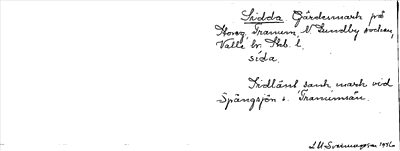 Sidda Gärdesmark på
Storeg, Tranum, N. Lundby socken,
Valle hr. Skb. l.
sida.
Sidlänt sank mark vid
Spångsjön o. Tranumsån.
1926